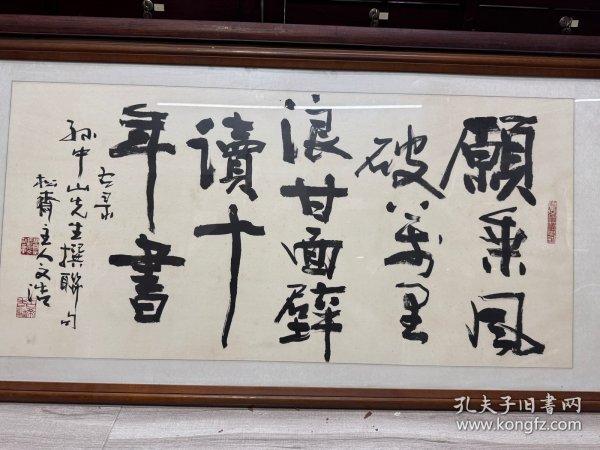 願乘風
破萬里
浪甘面壁
讀十
年書
右录
孙中山先生撰聯句
松齋主人文浩
孔夫子旧书网
www.kongfz.com